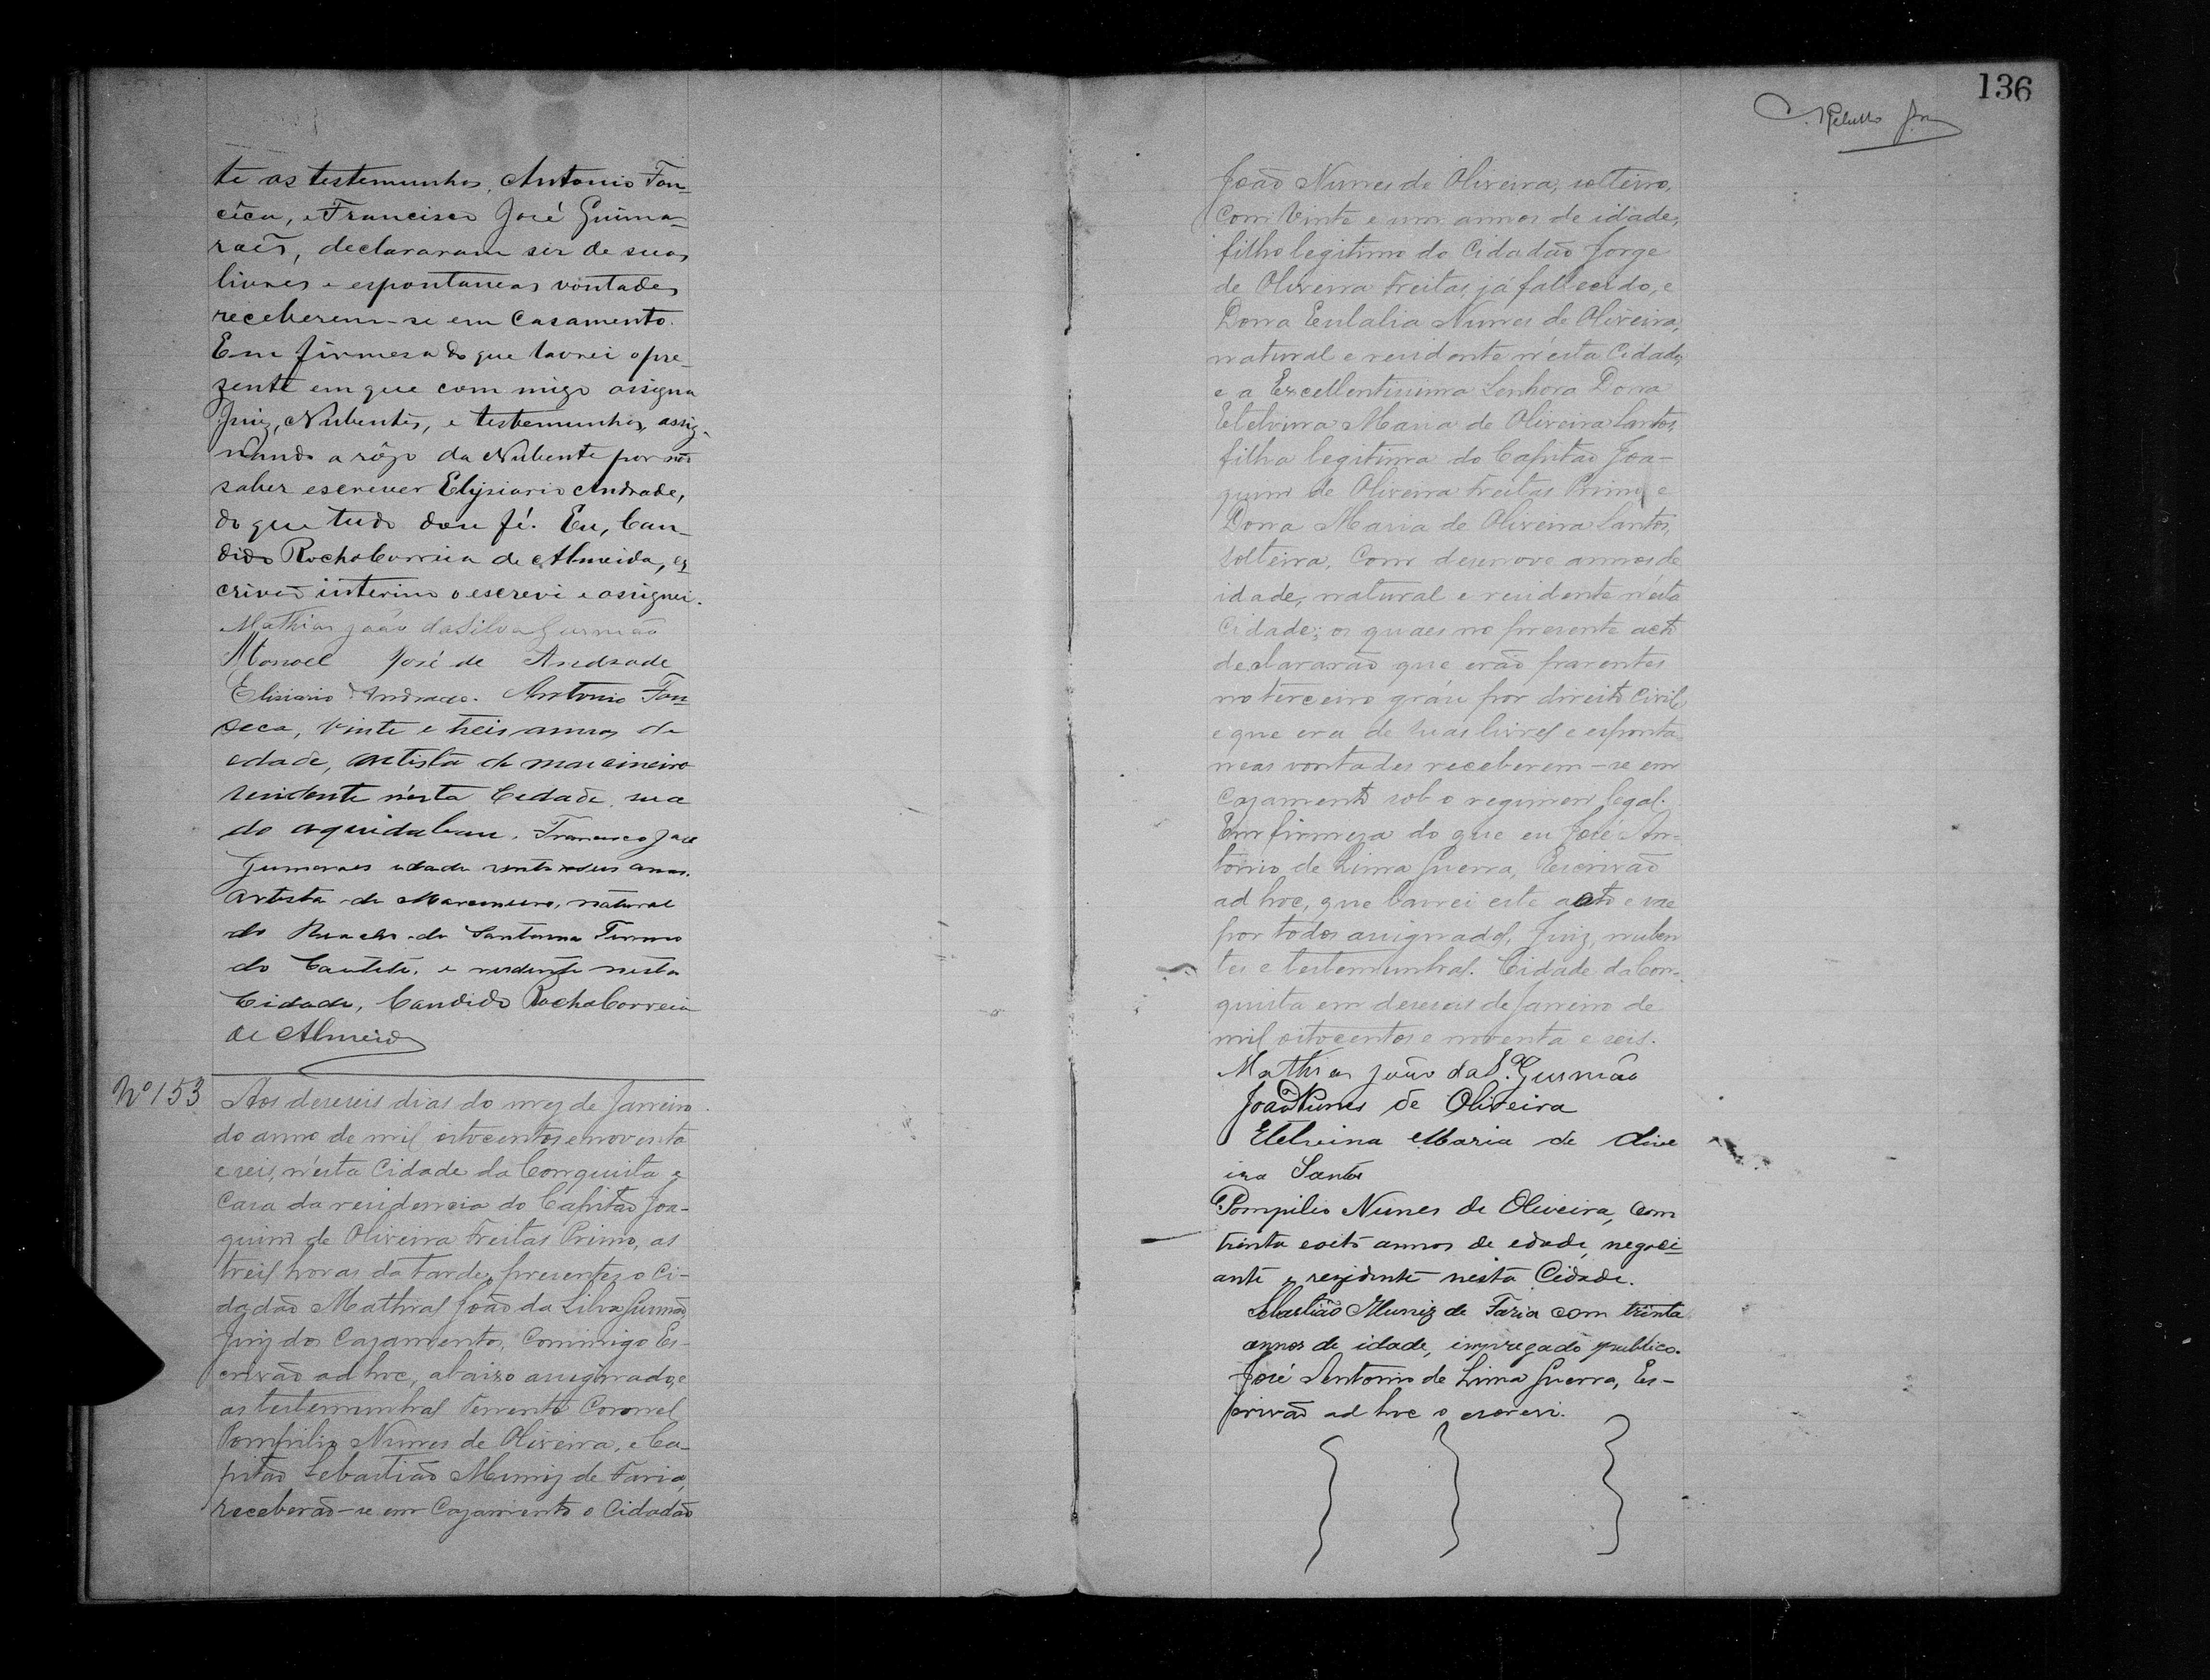 te as testemunhas, Antonio Fon-
ceca, e Francisco José Guima-
raẽs, declararam ser de suas
livres e espontaneas vontades
receberem-se em Casamento.
Em firmesa do que lavrei o pre-
zente em que com migo assigna
Juiz, Nubentes, e testemunhas, assig-
nando a rôgo da Nubente por não
saber escrever Elysiario Andrade,
do que tudo dou fé. Eu, Can-
dido Rocha Correia de Almeida, es
crivão interino o escrevi e assignei.
Mathias João da Silva Gusmão
Manoel José de Andrade
Elisiario Andrade. Antonio Fon-
seca, vinte e treis annos de
edade, artista de marcineiro
residente n'esta Cidade, rua
do aquidaban. Francisco José
Gumaraes idade vinte e seis annos.
Artista de Marcineiro, natural
do Riacho de Santanna Termo
do Caeteté, e residente nesta
Cidade, Candido Rocha Correia
de Almeida
Nº 153
Aos deseseis dias do mez de Janeiro
do anno de mil oitocentos e noventa
e seis, n'esta Cidade da Conquista e
Casa da residencia do Capitão Joa-
quim de Oliveira Freitas Primo, as
treis horas da tarde, presentes o Ci-
dadão Mathias João da Silva Gusmão
Juiz dos Cazamentos, Commigo Es-
crivão ad hoc, abaixo assignado, e
as testemunhas Tenente Coronel
Pompilio Nunes de Oliveira, e Ca-
pitão Sebastião Muniz de Faria,
receberão-se em Cazamento o Cidadão
136
João Nunes de Oliveira, solteiro,
Com vinte e um annos de idade,
filho legitimo do Cidadão Jorge
de Oliveira Freitas, já fallecido, e
Dona Eulalia Nunes de Oliveira,
natural e residente n'esta Cidade,
e a Excellentissima Senhora Dona
Etelvina Maria de Oliveira Santos,
filha legitima do Capitão Joa-
quim de Oliveira Freitas Primo e
Dona Maria de Oliveira Santos,
solteira, Com desenove annos de
idade, natural e residente n'esta
Cidade; os quaes no presente acto
declararão que erão parentes
no terceiro gráu por direito Civil,
e que era de suas livres e esponta-
neas vontades receberem-se em
Cazamento sob o regimen legal.
Em firmeza do que eu José An-
tonio de Lima Guerra, Escrivão
ad hoc, que lavrei este acto e vae
por todos assignados, Juiz, nuben
tes e testemunhas. Cidade da Con-
quista em deseseis de Janeiro de
mil oitocentos e noventa e seis.
Mathias João da Sª Gusmão
João Nunes de Oliveira
Etelveina Maria de Olive
ira Santos
Pompilio Nunes de Oliveira, com
trinta e oito annos de edade, negoci-
ante e rezidente nesta Cidade.
Sebastião Muniz de Faria com trinta
annos de idade, impregado publico.
José Antonio de Lima Guerra, Es-
crivão ad hoc o escrevi.